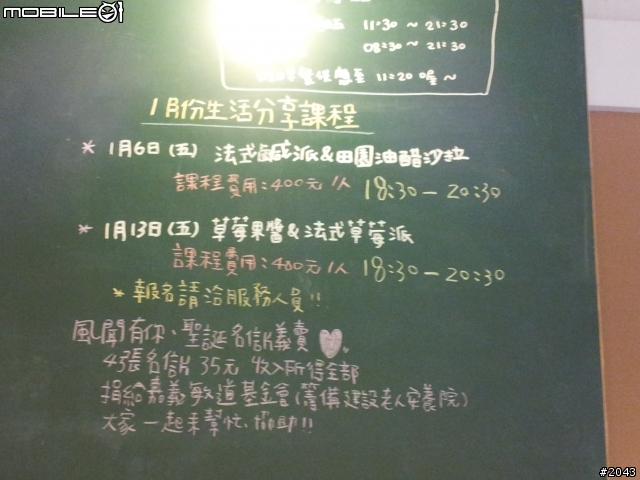 MOBILE01
11:30 ~ 21:30
08:30 ~ 21:30
11:20 喔~
1月份生活分享課程
* 1月6日(五) 法式鹹派&田園油醋沙拉
課程費用:400元/人 18:30-20:30
* 1月13日(五) 草莓果醬&法式草莓派
課程費用:400元/人 18:30-20:30
* 報名請洽服務人員!!
風聞有你、聖誕名信片義賣
4張名信片 35元 收入所得全部
捐給嘉義敏道基金會(籌備建設老人安養院)
大家一起來幫忙、協助!!
#2043